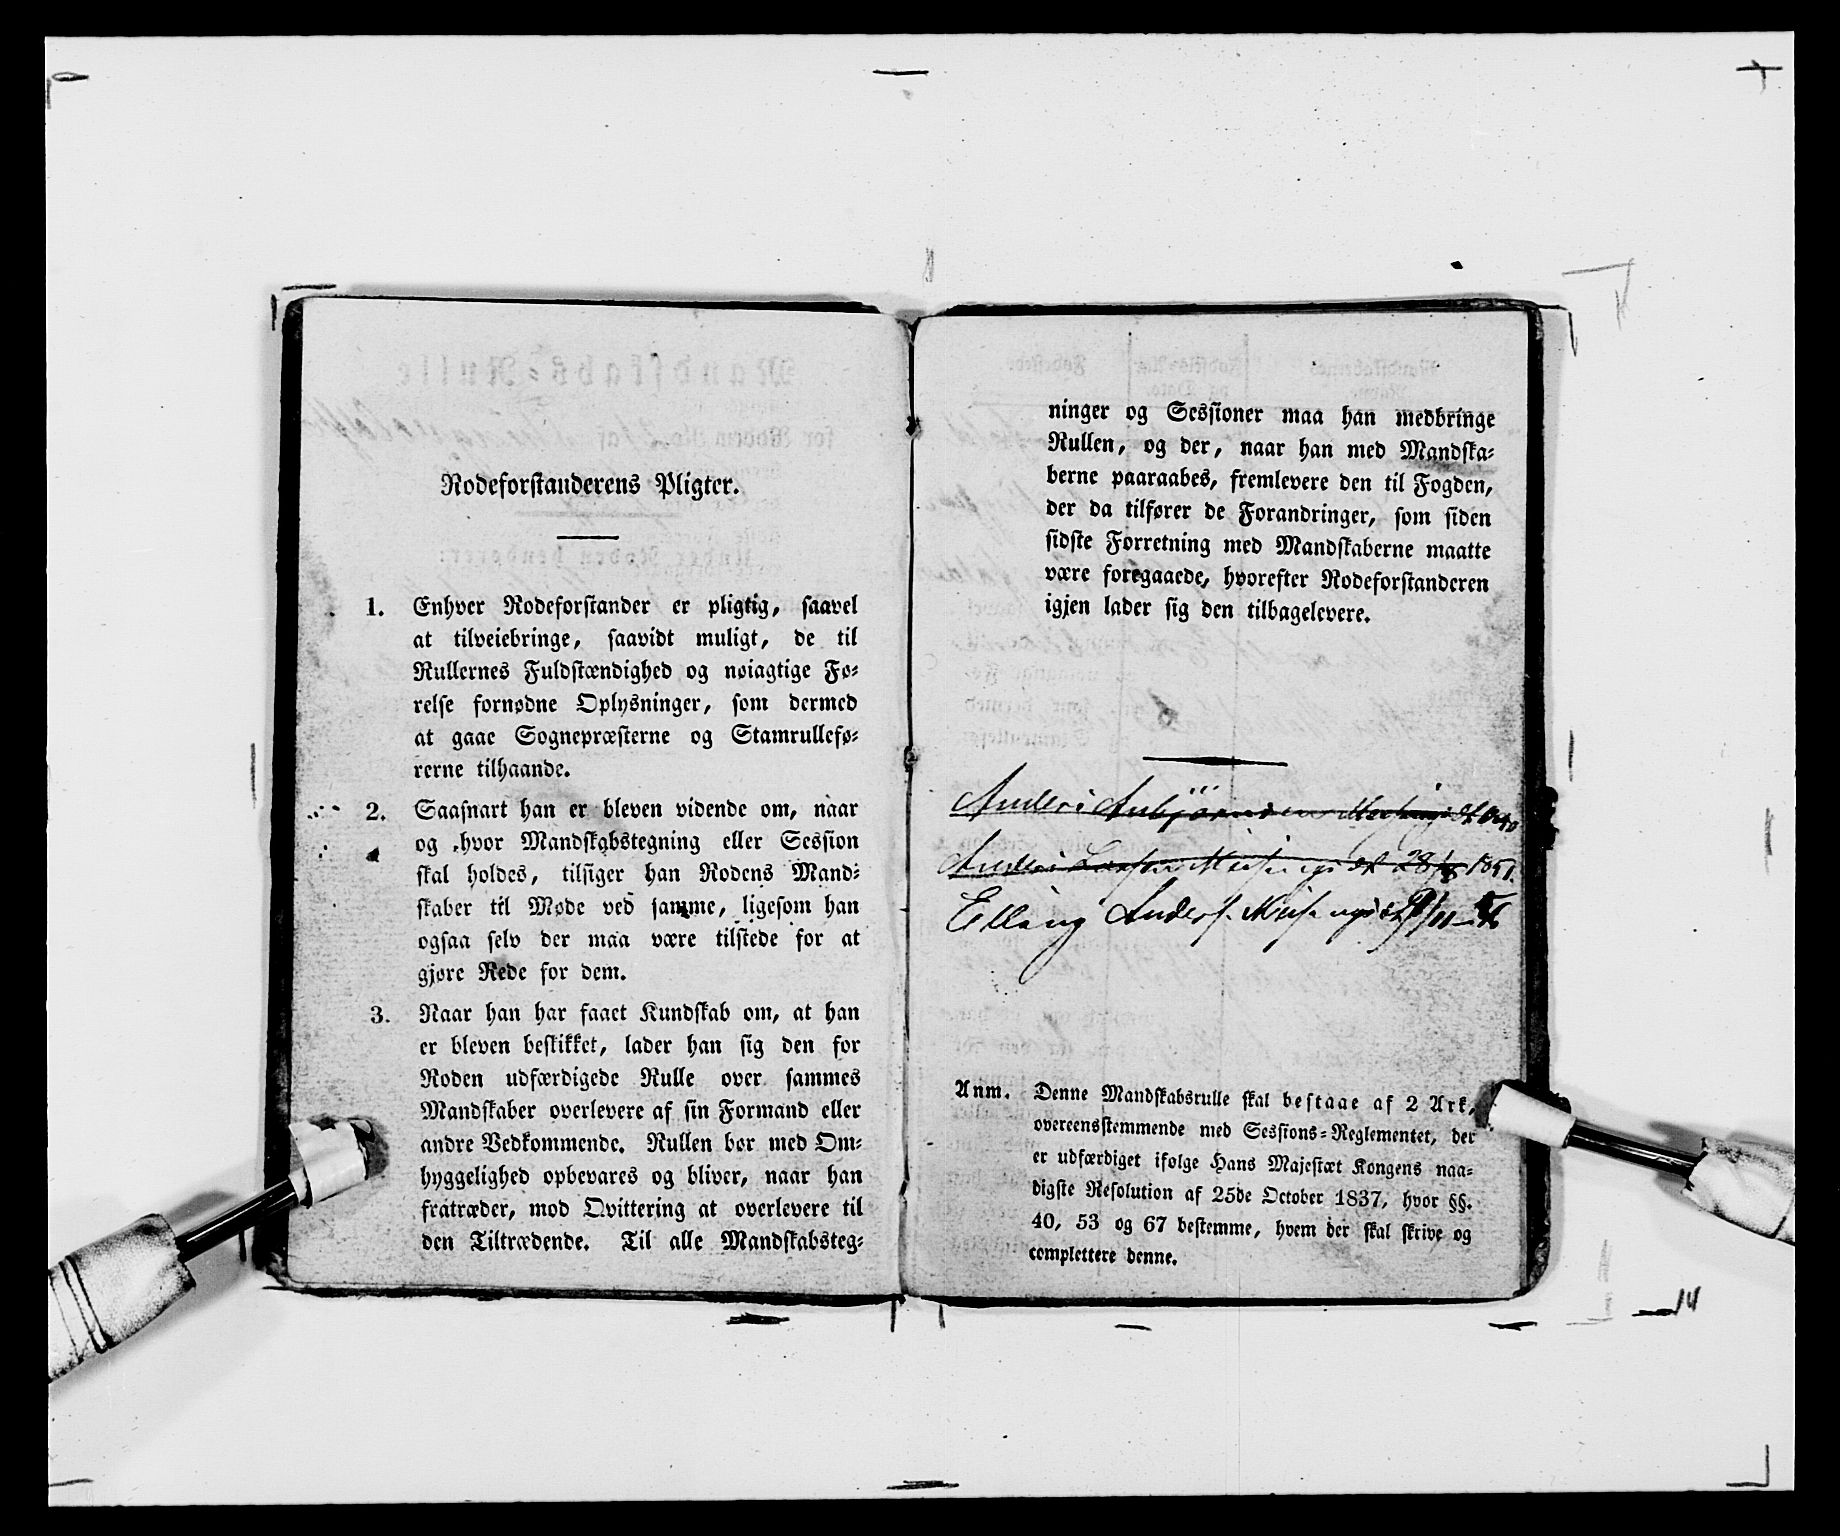 Rodeforstanderens Pligter.
1. Enhver Rodeforstander er pligtig, saavel
at tilveiebringe, saavidt muligt, de til
Rullernes Fuldstændighed og nøiagtige Fø-
relse fornødne Oplysninger, som dermed
at gaae Sognepræsterne og Stamrullefø-
rerne tilhaande.
2. Saasnart han er bleven vidende om, naar
og hvor Mandskabstegning eller Session
skal holdes, tilsiger han Rodens Mand-
skaber til Møde ved samme, ligesom han
ogsaa selv der maa være tilstede for at
gjøre Rede for dem.
3. Naar han har faaet Kundskab om, at han
er bleven beskikket, lader han sig den for
Roden udfærdigede Rulle over sammes
Mandskaber overlevere af sin Formand eller
andre Vedkommende. Rullen bør med Om-
hyggelighed opbevares og bliver, naar han
fratræder, mod Qvittering at overlevere til
den Tiltrædende. Til alle Mandskabsteg-
ninger og Sessioner maa han medbringe
Rullen, og der, naar han med Mandska-
berne paaraabes, fremlevere den til Fogden,
der da tilfører de Forandringer, som siden
sidste Forretning med Mandskaberne maatte
være foregaaede, hvorefter Rodeforstanderen
igjen lader sig den tilbagelevere.
Anders Anbjørnsen
Anders Larsen 28 1851.
Elling Anders.
Anm. Denne Mandskabsrulle skal bestaae af 2 Ark,
overeensstemmende med Sessions-Reglementet, der
er udfærdiget ifølge Hans Majestæt Kongens naa-
digste Resolution af 25de October 1837, hvor §§.
40, 53 og 67 bestemme, hvem der skal skrive og
complettere denne.
14